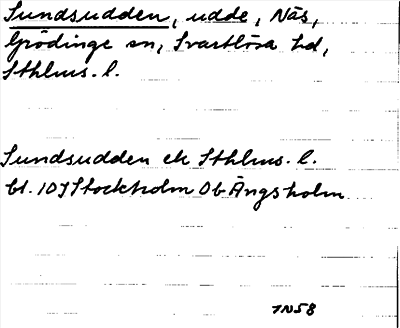 Sundsudden, udde, Näs,
Grödinge sn, Svartlösa hd,
Sthlms. l.
Sundsudden ek Sthlms. l.
bl. 10I Stockholm Ob Ängsholm
1N58